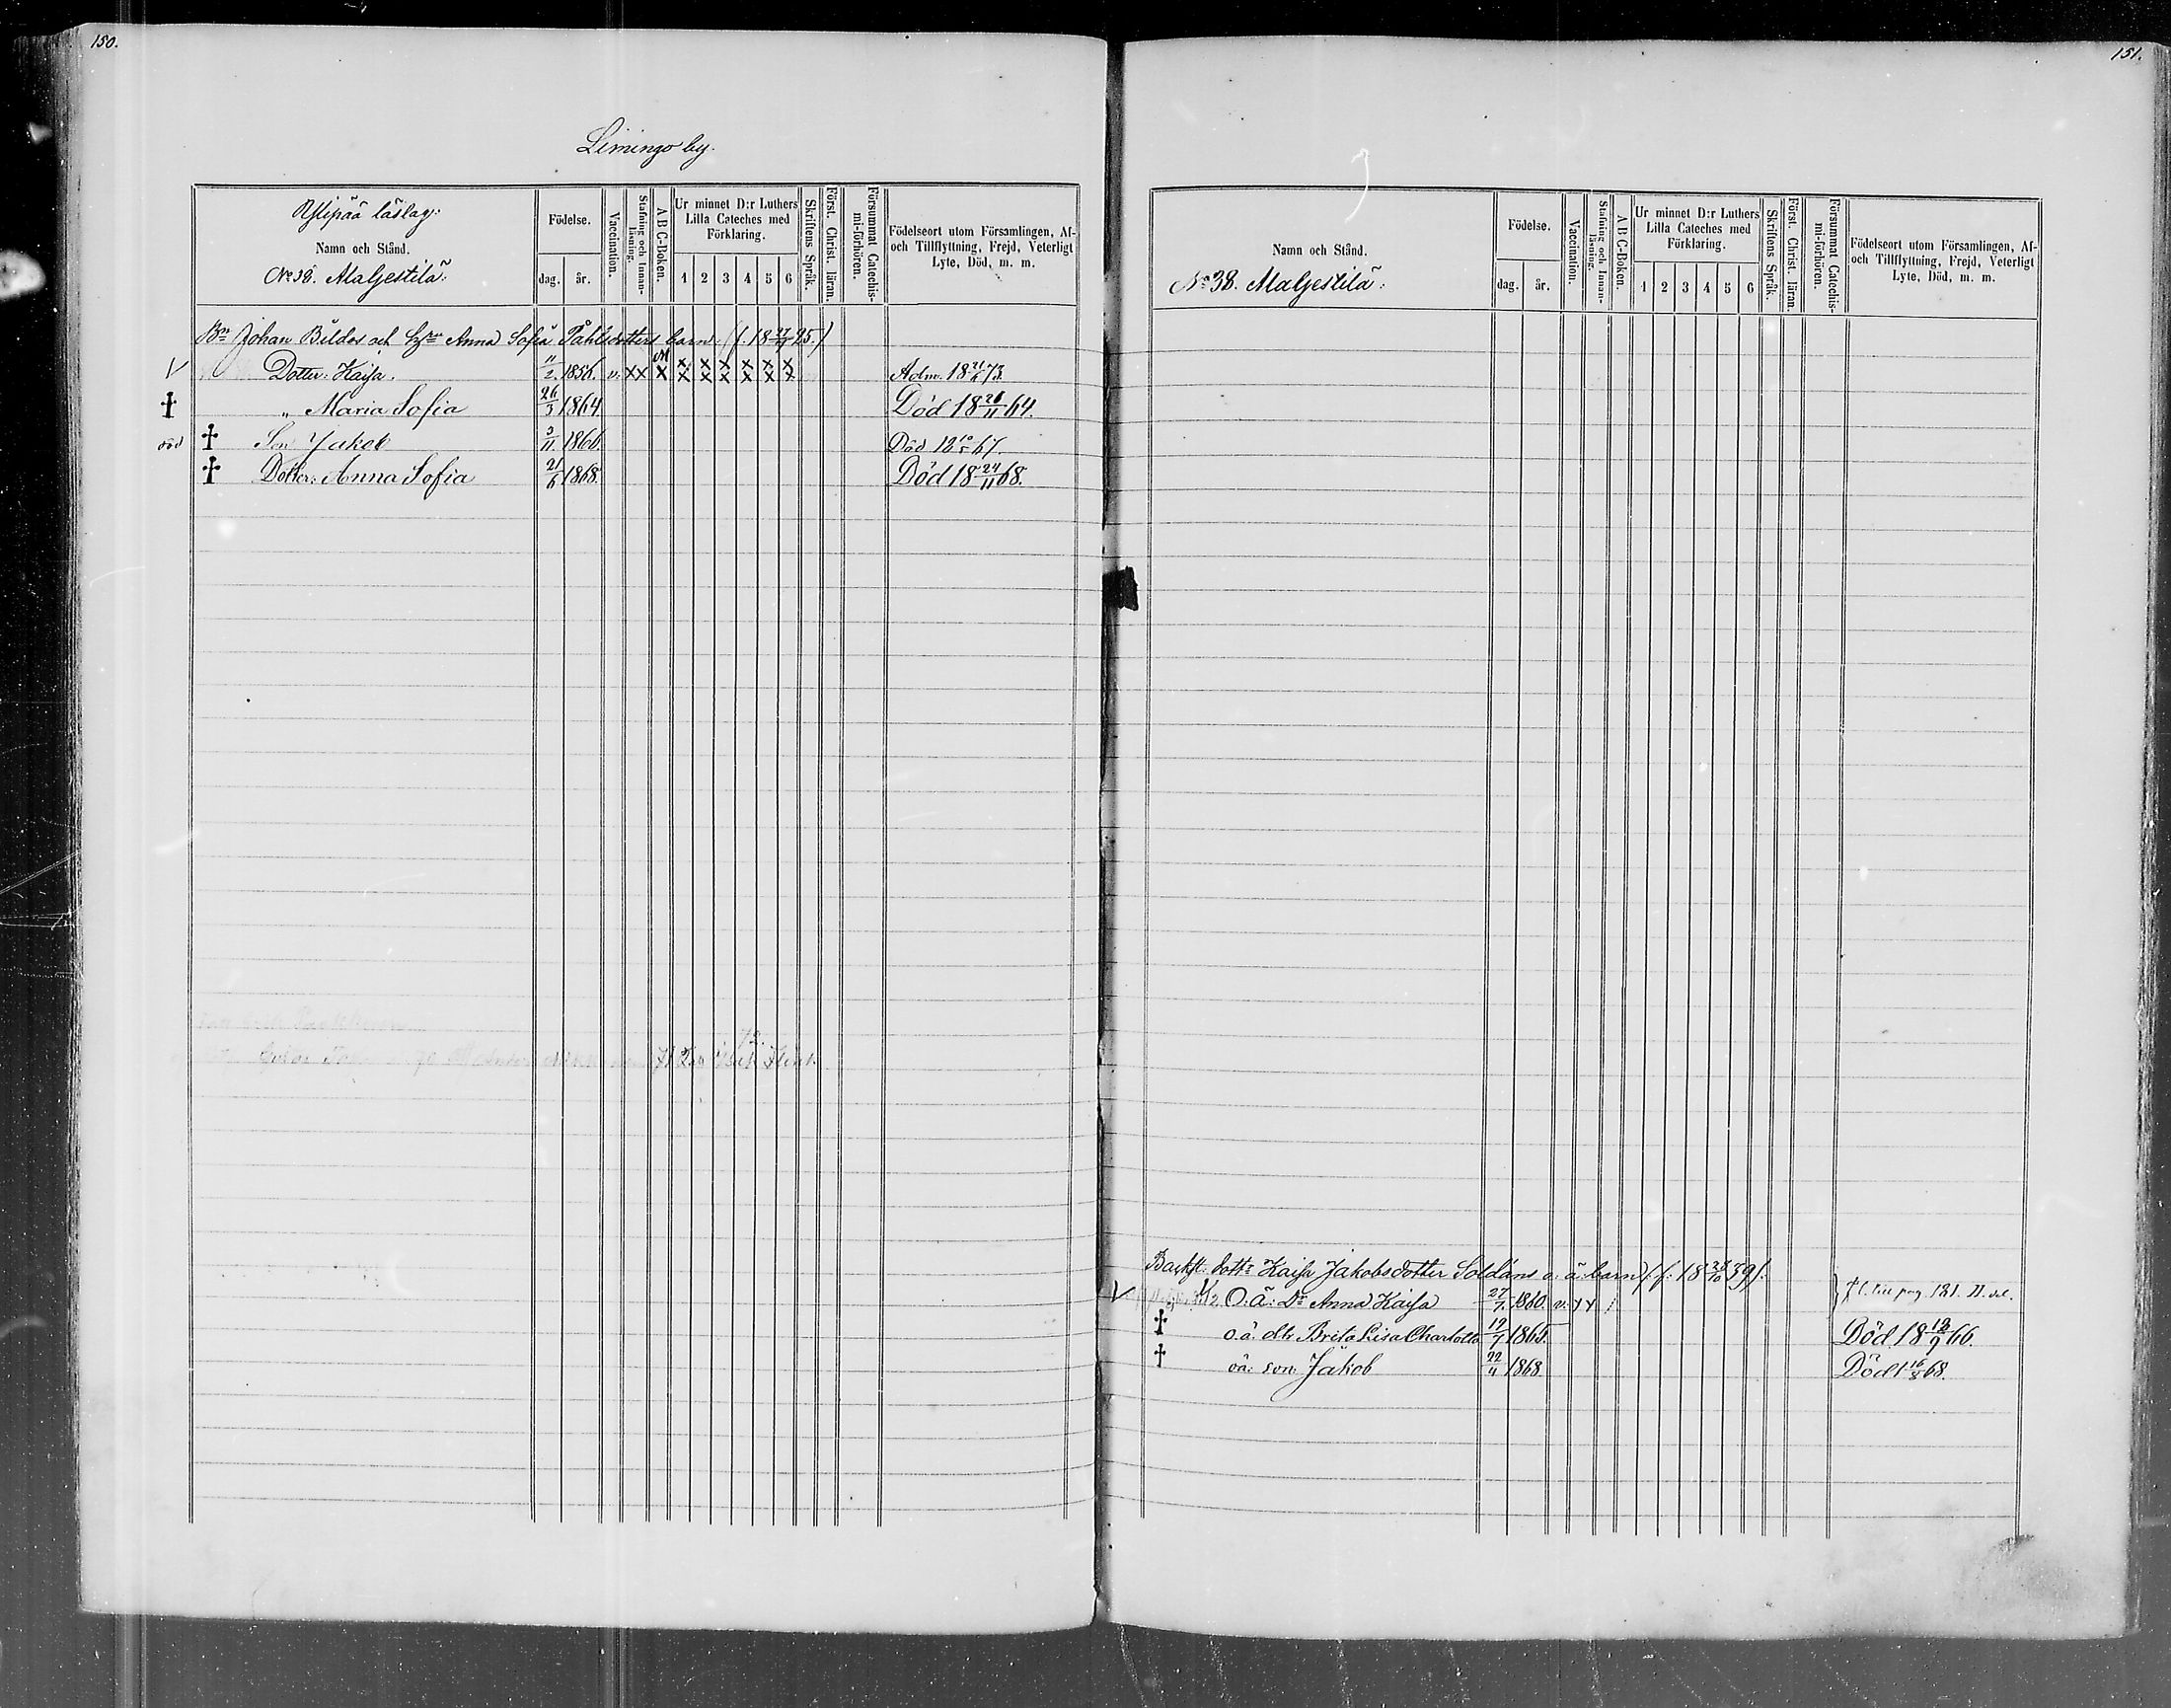 150.
Limingo by.
Ylipää läslag:
Namn och Stånd.
No 38. Maljestilä:
Födelse.
dag. år.
Vaccination.
Stafning och Innanläsning.
A B C-Boken.
Ur minnet D:r Luthers
Lilla Cateches med
Förklaring.
1 2 3 4 5 6
Skriftens Språk.
Först. Christ. läran.
Försummat Catechismi-förhören.
Födelseort utom Församlingen, Af-
och Tillflyttning, Frejd, Veterligt
Lyte, Död, m. m.
Bn Johan Bildos och Anna Sofia Påhlsdotters barn
V Dotter: Kaisa. 11/2. 1856. v. x x x x x x x x x Adm. 18 21/6 73.
† „ Maria Sofia 26/3 1864. Död 18 26/11 64.
död † Son Jakob 3/11. 1866. Död 18 10/5 67.
† Dotter: Anna Sofia 21/6 1868. Död 18 24/11 68.
72.
151.
Namn och Stånd.
No 38. Maljestilä:
Födelse.
dag. år.
Vaccination.
Stafning och Innanläsning.
A B C-Boken.
Ur minnet D:r Luthers
Lilla Cateches med
Förklaring.
1 2 3 4 5 6
Skriftens Språk.
Först. Christ. läran.
Försummat Catechismi-förhören.
Födelseort utom Församlingen, Af-
och Tillflyttning, Frejd, Veterligt
Lyte, Död, m. m.
Backst: dottr Kaisa Jakobsdotter Soldans o. ä. barn
V O. Ä: Dr Anna Kaisa 27/7. 1860. v. pag. 121. II. del.
† o. ä. dtr Brita Lisa Charlotta 19/1 1865. Död 18 12/9 66.
† oä: son: Jakob 22/4 1868. Död 1 16/8 68.